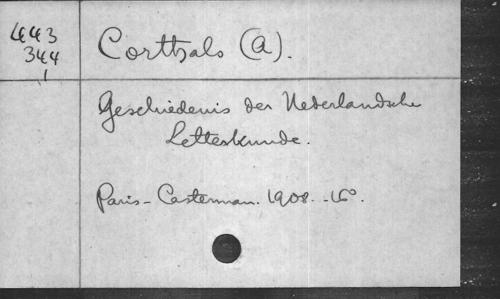 443
344
1
Corthals (A).
Geschiedenis der Nederlandsche
Letterkunde.
Paris - Casterman. 1908. - 16°.